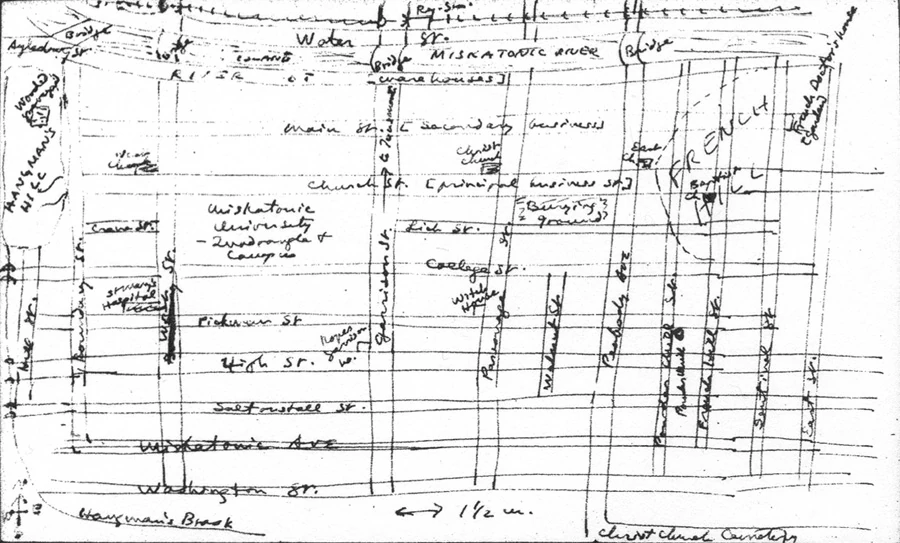 Ry. Sta.
Water St.
Bridge
Aylesbury St.
MISKATONIC RIVER
Bridge
Bridge
RIVER ST
[warehouses]
Wooded
HANGMAN'S
HILL
Main St. [Secondary business
Christ
Church
East
Ch.
FRENCH
HILL
Baptist
Ch.
Church St. [principal business St.]
Miskatonic
University
- Quadrangle &
Campus
Crane St.
Lich St.
Burying
ground
College St.
St Mary's
Hospital
Witch
House
Pickman St
High St.
Saltonstall St.
Miskatonic Ave
Washington St.
Hangman's Brook
Hill St.
Boundary St.
West St.
Garrison St.
Parsonage St.
Walnut St
Peabody Ave
French Hill St
Sentinel St
East St.
1/2 m.
Christchurch Cemetery